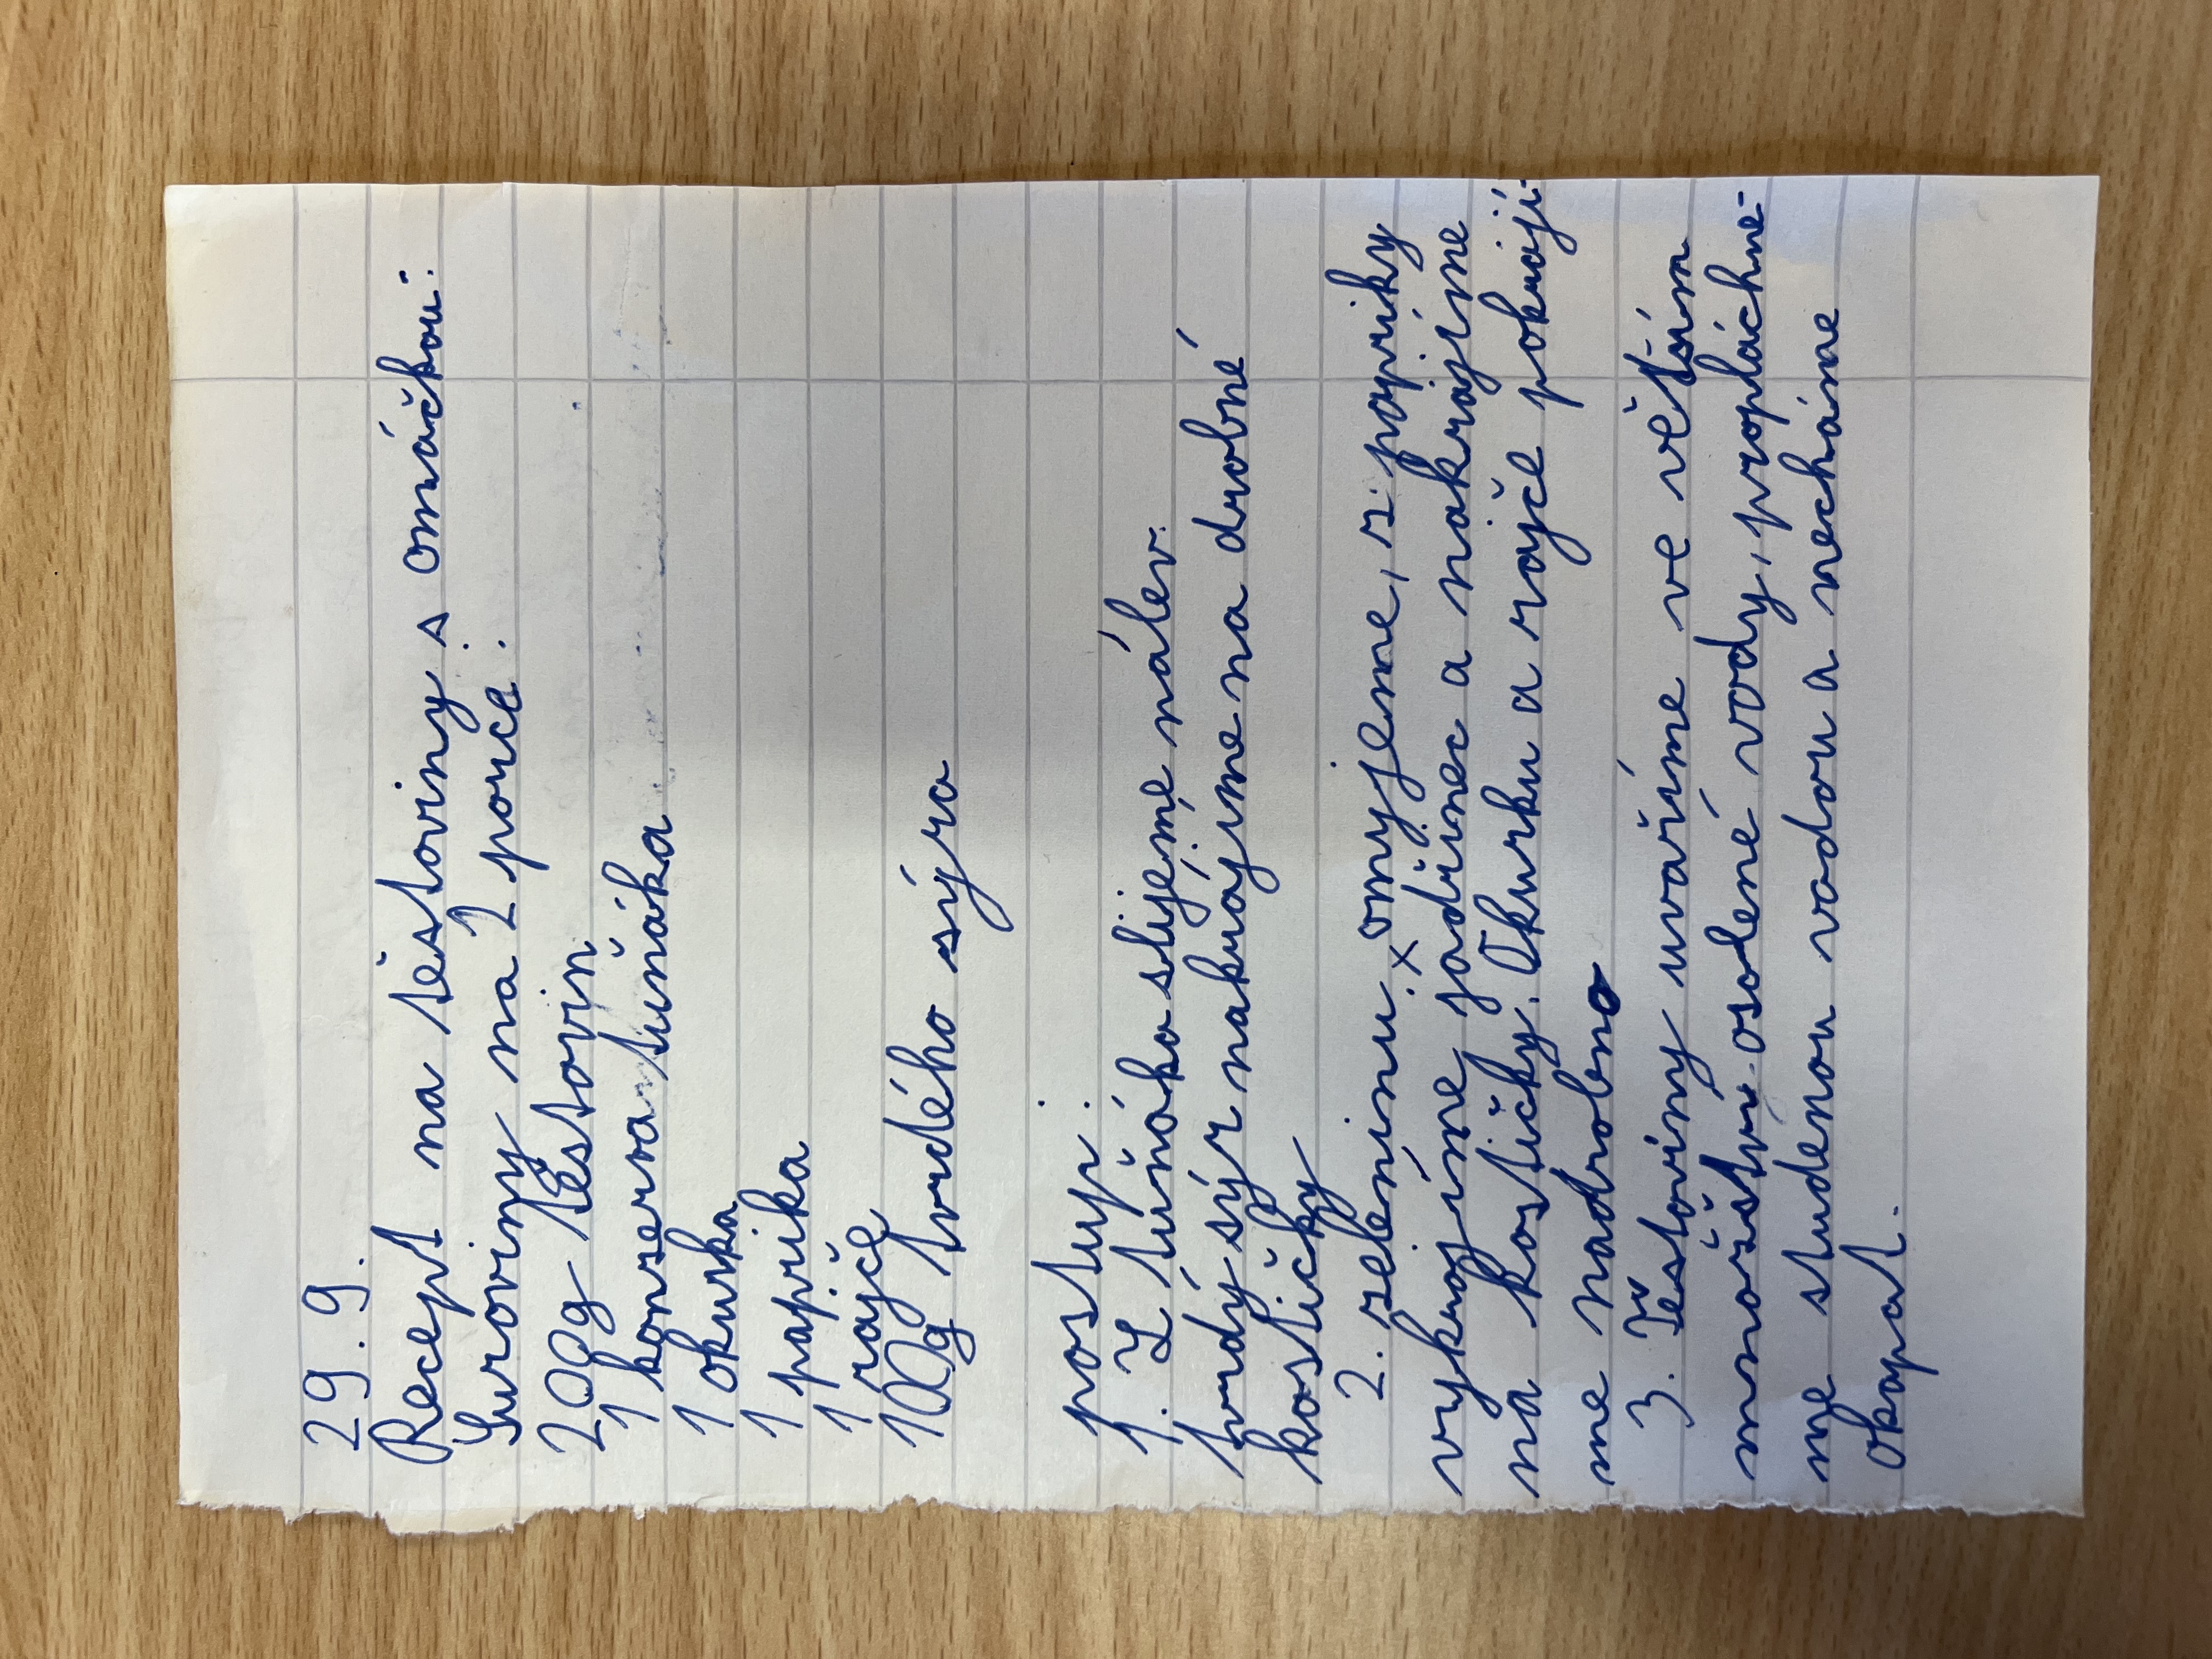 29.9.
Recept na těstoviny s omáčkou:
Suroviny na 2 porce:
200g těstovin
1 konserva tuňáka
1 okurka
1 paprika
1 rajče
100g tvrdého sýra
postup:
1. Z tuňáka slijeme nálev.
tvrdý sýr nakrájíme na drobné
kostičky
2. zeleninu x omyjeme, z papriky
vykrojíme jadřinec a nakrájíme
na kostičky. Okurku a rajče pokrájí-
me nadrobno
3. Těstoviny uvaříme ve větším
množství osolené vody, propláchne-
me studenou vodou a necháme
okapat.